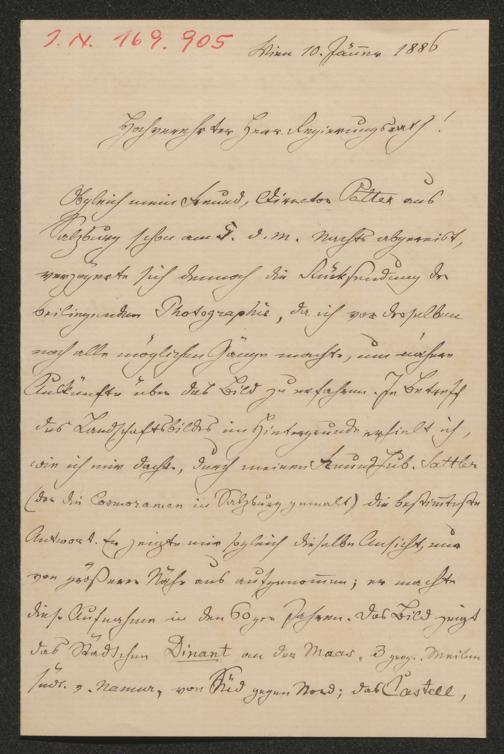 J. N. 169.905
Wien 10. Jänner 1886
Hochverehrter Herr Regierungsrath!
Obgleich mein Freund, Director Petter aus
Salzburg schon am 5. d. M. Nachts abgereist,
verzögerte sich dennoch die Rücksendung der
beiliegenden Photographie, da ich vor derselben
noch alle möglichen Gänge machte, um nähere
Auskünfte über das Bild zu erfahren. In betreff
des Landschaftsbildes im Hintergrunde erhielt ich,
wie ich mir dachte, durch meinen Freund Hub. Sattler
(der die Cosmoramen in Salzburg gemalt) die bestimmteste
Antwort. Er zeigte mir sogleich dieselbe Ansicht, nur
von größerer Nähe aus aufgenommen; er machte
diese Aufnahme in den 60ger Jahren. Das Bild zeigt
das Städtchen Dinant an der Maas, 3 geog. Meilen
südl. v. Namur, von Süd gegen Nord; das Castell,